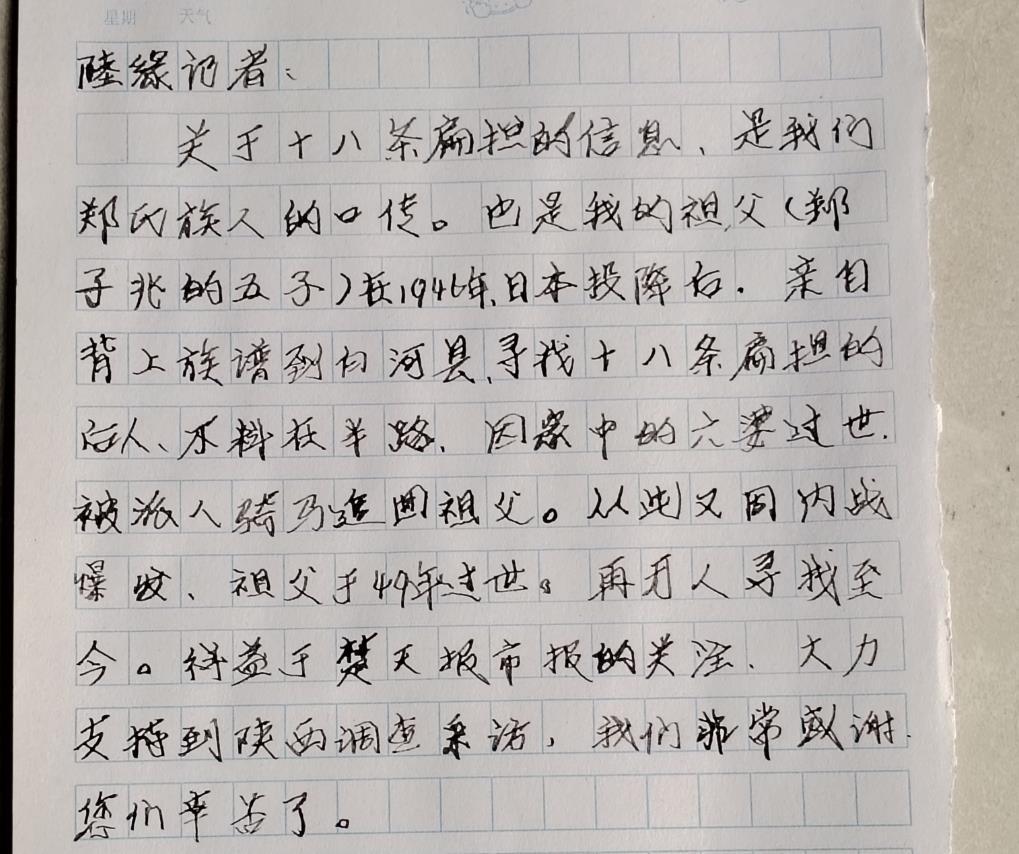 星期 天气
陸緣记者：
关于十八条扁担的信息、是我们
郑氏族人的口传。也是我的祖父（郑
子兆的五子）在1946年，日本投降后．亲自
背上族谱到白河县，寻找十八条扁担的
后人、不料在半路．因家中的六婆过世．
被派人骑马追回祖父。从此又因内战
爆发、祖父于49年过世。再无人寻找至
今。得益于楚天报市报的关注．大力
支持到陕西调查采访，我们非常感谢．
您们辛苦了。